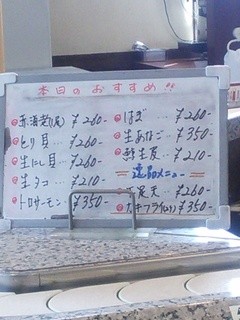 本日のおすすめ!!
赤海老(1尾) ¥260-
とり貝 … ¥260-
生にし貝 … ¥260-
生タコ … ¥210-
トロサーモン … ¥350-
はぎ … ¥260-
生あなご … ¥350-
鯵 … ¥210-
逸品メニュー
天 … ¥350-
カキフライ(2ケ) ¥350-